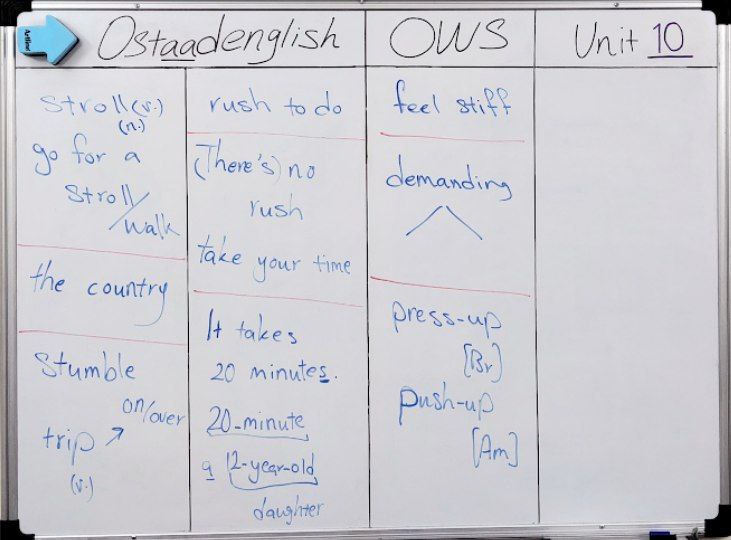 Ostaadenglish
OWS
Unit 10
stroll (v.)
(n.)
go for a
stroll/
walk
the country
stumble
on/over
trip ↗
(v.)
rush to do
(There's) no
rush
take your time
It takes
20 minutes.
20-minute
a 12-year-old
daughter
feel stiff
demanding
press-up
[Br]
push-up
[Am]